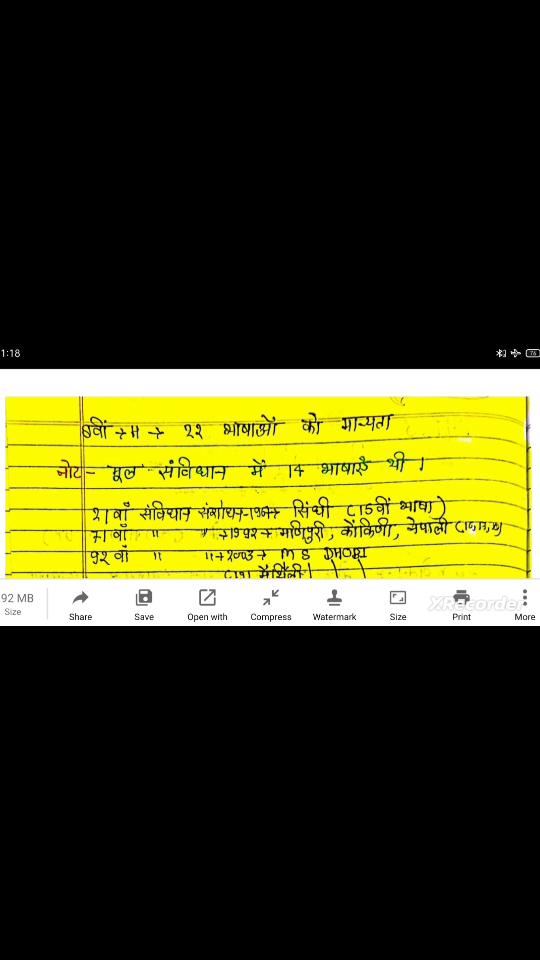 1:18
76
8वीं → 11 → 22 भाषाओं को मान्यता
नोट- मूल संविधान में 14 भाषाऐं थी।
21वाँ संविधान संशोधन-1967→ सिंधी (15वीं भाषा)
71वाँ " "→1992→ मणिपुरी, कोंकिणी, नेपाली (16,17,18)
92वाँ " "→2003→ M S DHOBI
(19) मैथिली।
92 MB
Size
Share
Save
Open with
Compress
Watermark
Size
Print
More
XRecorder